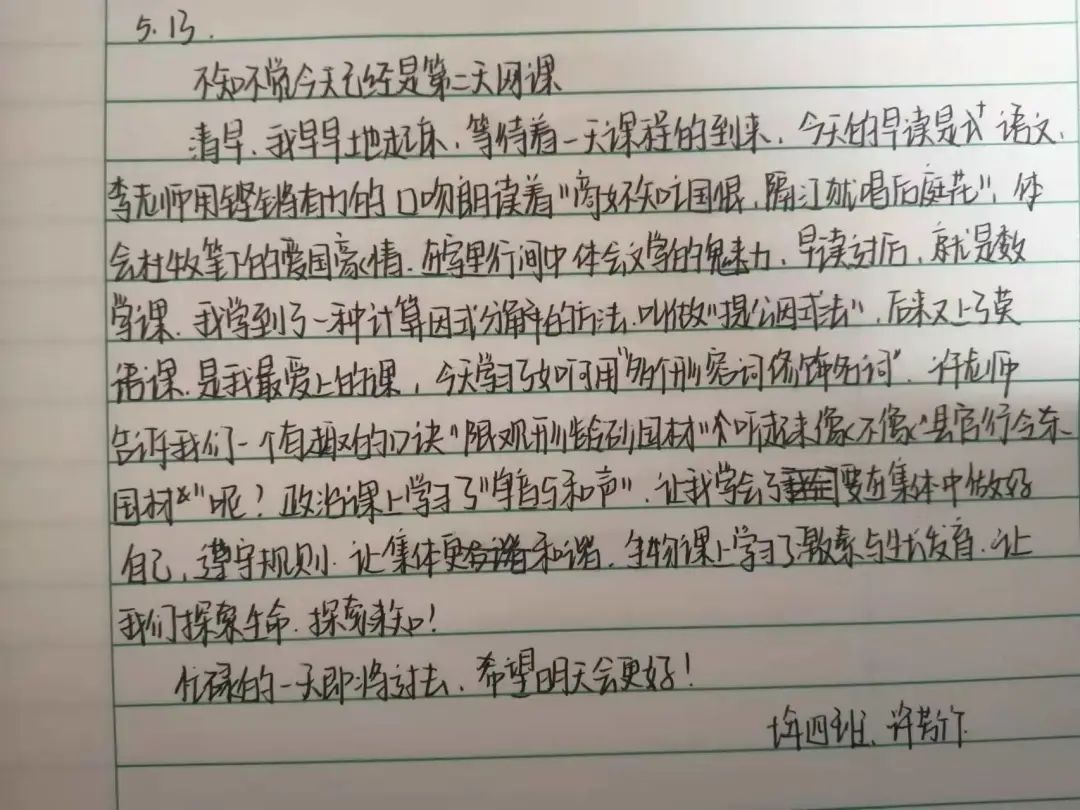 5.13.
不知不觉今天已经是第二天网课
清早,我早早地起床,等待着一天课程的到来,今天的早读是 语文,
李老师用铿锵有力的口吻朗读着“商女不知亡国恨,隔江就唱后庭花”,体
会杜牧笔下的爱国豪情.在字里行间中体会文学的魅力,早读过后,就是数
学课.我学到了一种计算因式分解的方法,叫做“提公因式法”,后来又上了英
语课.是我最爱上的课,今天学习了如何用“多个形容词修饰名词”.许老师
告诉我们一个有趣的口诀“限观形龄色国材”听起来像不像“县官行令东
国材”呢?政治课上学习了“单音与和声”,让我学会了要在集体中做好
自己,遵守规则.让集体更和谐,生物课上学习了激素与生长发育.让
我们探索生命.探索未知!
忙碌的一天即将过去,希望明天会更好!
四班、许